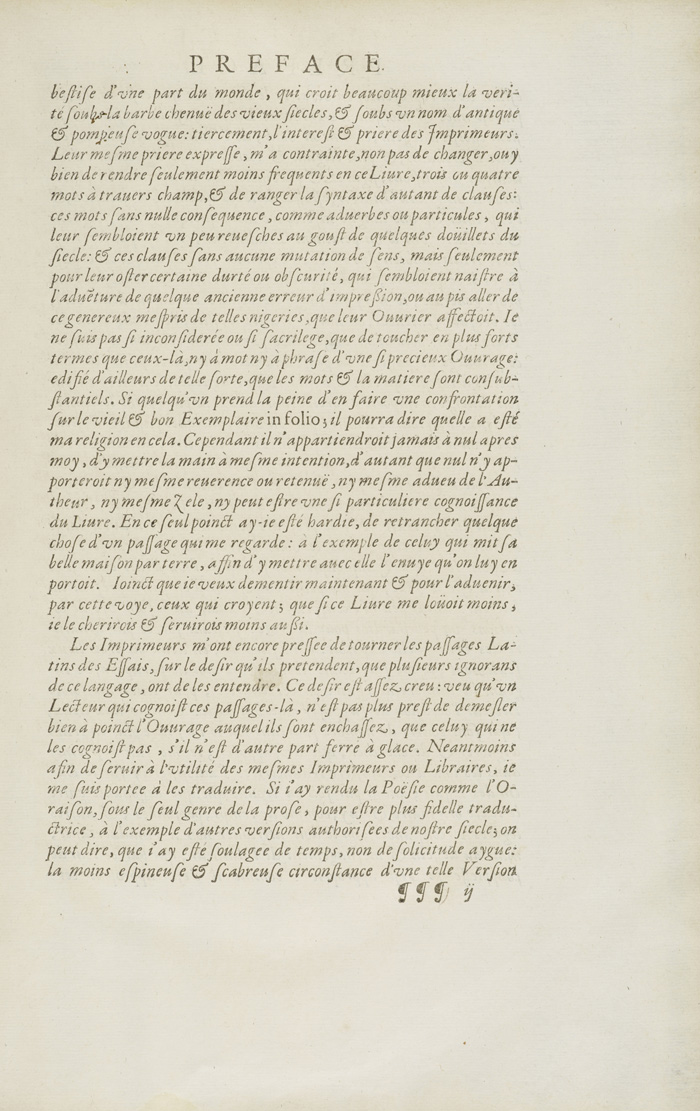 PREFACE.
beſtiſe d'vne part du monde, qui croit beaucoup mieux la veri-
té ſoubs la barbe chenuë des vieux ſiecles, & ſoubs vn nom d'antique
& pompeuſe vogue: tiercement, l'intereſt & priere des Imprimeurs.
Leur meſme priere expreſſe, m'a contrainte, non pas de changer, ouy
bien de rendre ſeulement moins frequents en ce Liure, trois ou quatre
mots à trauers champ, & de ranger la ſyntaxe d'autant de clauſes:
ces mots ſans nulle conſequence, comme aduerbes ou particules, qui
leur ſembloient vn peu reueſches au gouſt de quelques doüillets du
ſiecle: & ces clauſes ſans aucune mutation de ſens, mais ſeulement
pour leur oſter certaine durté ou obſcurité, qui ſembloient naiſtre à
l'aduẽture de quelque ancienne erreur d'impreſſion, ou au pis aller de
ce genereux meſpris de telles nigeries, que leur Ouurier affectoit. Ie
ne ſuis pas ſi inconſiderée ou ſi ſacrilege, que de toucher en plus forts
termes que ceux-là, ny à mot ny à phraſe d'vne ſi precieux Ouurage:
edifié d'ailleurs de telle ſorte, que les mots & la matiere ſont conſub-
ſtantiels. Si quelqu'vn prend la peine d'en faire vne confrontation
ſur le vieil & bon Exemplaire in folio; il pourra dire quelle a eſté
ma religion en cela. Cependant il n'appartiendroit jamais à nul apres
moy, d'y mettre la main à meſme intention, d'autant que nul n'y ap-
porteroit ny meſme reuerence ou retenuë, ny meſme adueu de l'Au-
theur, ny meſme Zele, ny peut eſtre vne ſi particuliere cognoiſſance
du Liure. En ce ſeul poinct ay-ie eſté hardie, de retrancher quelque
choſe d'vn paſſage qui me regarde: à l'exemple de celuy qui mit ſa
belle maiſon par terre, affin d'y mettre auec elle l'enuye qu'on luy en
portoit. Ioinct que ie veux dementir maintenant & pour l'aduenir,
par cette voye, ceux qui croyent; que ſi ce Liure me loüoit moins,
ie le cherirois & ſeruirois moins auſſi.
Les Imprimeurs m'ont encore preſſee de tourner les paſſages La-
tins des Eſſais, ſur le deſir qu'ils pretendent, que pluſieurs ignorans
de ce langage, ont de les entendre. Ce deſir eſt aſſez creu: veu qu'vn
Lecteur qui cognoiſt ces paſſages-là, n'eſt pas plus preſt de demeſler
bien à poinct l'Ouurage auquel ils ſont enchaſſez, que celuy qui ne
les cognoiſt pas, s'il n'eſt d'autre part ferré à glace. Neantmoins
afin de ſeruir à l'vtilité des meſmes Imprimeurs ou Libraires, ie
me ſuis portee à les traduire. Si i'ay rendu la Poëſie comme l'O-
raiſon, ſous le ſeul genre de la proſe, pour eſtre plus fidelle tradu-
ctrice, à l'exemple d'autres verſions authoriſées de noſtre ſiecle; on
peut dire, que i'ay eſté ſoulagee de temps, non de ſolicitude aygue:
la moins eſpineuſe & ſcabreuſe circonſtance d'vne telle Verſion
¶¶¶ ij